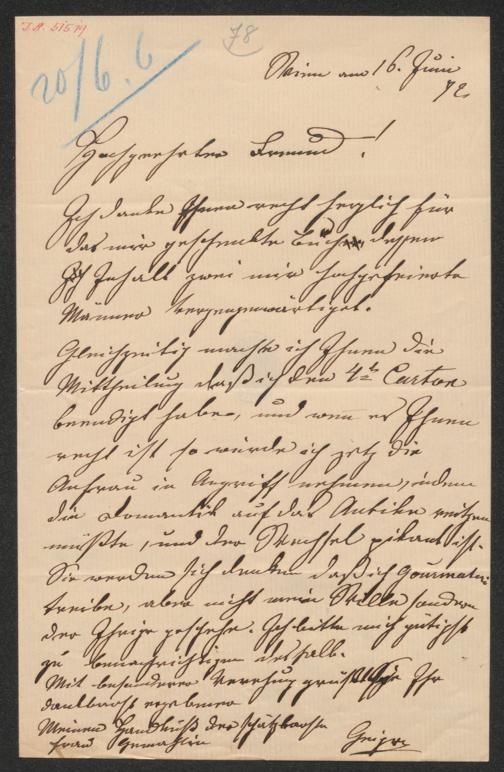 I.N. 51519
78
20/6. 6
Wien am 16. Juni
72
Hochgeehrter Freund!
Ich danke Ihnen recht herzlich für
das mir geschenkte Buch dessen
Inhalt zwei mir hochgefeierte
Männer vergegenwärtiget.
Gleichzeitig mache ich Ihnen die
Mittheilung daß ich den 4t Carton
beendigt habe, und wen es Ihnen
recht ist so würde ich jetz die
in Angriff nehmen, indem
die Romantik auf das Antike
müßte, und der Wechsel pikant ist.
Sie werden sich denken daß ich
treibe, aber nicht mein Wille sondern
der Ihrige geschehe. Ich bitte mich gütigst
zu benachrichtigen deshalb.
Mit besonderer Verehrung grüßt Sie Ihr
dankbarst ergebener
Meinen Handkuß der schätzbarsten
Frau Gemahlin
Geiger